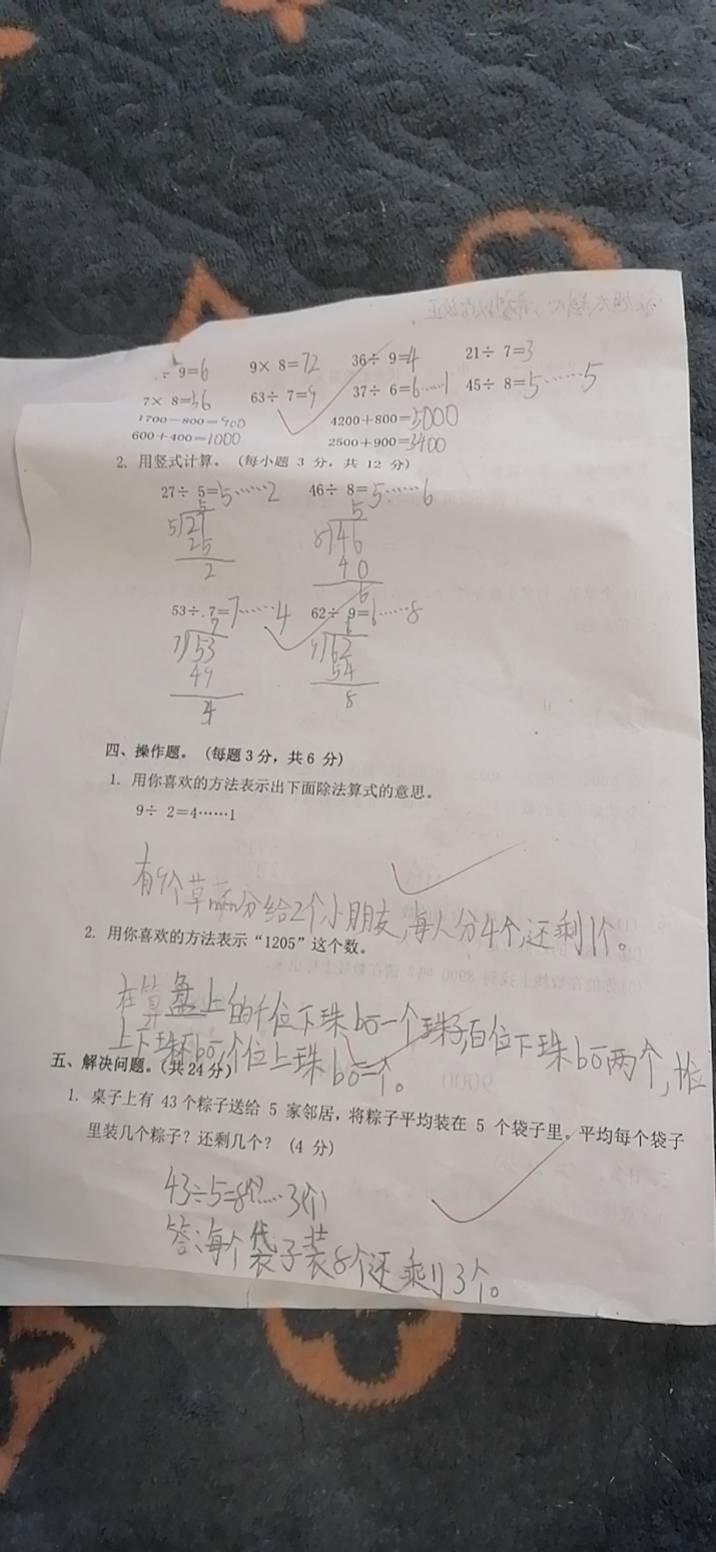 ÷ 9=6 9× 8=72 36÷ 9=4 21÷ 7=3
7× 8=56 63÷ 7=9 37÷ 6=6……1 45÷ 8=5……5
1700－800=900 4200+800=5000
600+400=1000 2500+900=3400
2. 用竖式计算。（每小题 3 分，共 12 分）
27÷ 5=5……2 46÷ 8=5……6
5 5
5 27 8 46
25 40
2 6
53÷ 7=7……4 62÷ 9=6……8
7 6
7 53 9 62
49 54
4 8
四、操作题。（每题 3 分，共 6 分）
1. 用你喜欢的方法表示出下面除法算式的意思。
9÷ 2=4……1
有9个草莓分给2个小朋友,每人分4个,还剩1个。
2. 用你喜欢的方法表示“1205”这个数。
在算盘上的千位下珠bō一个珠子,百位下珠bō两个,
上下珠不bō,个位上珠bō一个。
五、解决问题。（共 24 分）
1. 桌子上有 43 个粽子送给 5 家邻居，将粽子平均装在 5 个袋子里。平均每个袋子
里装几个粽子？还剩几个？（4 分）
43÷5=8(个)……3(个)
答:每个袋子装8个还剩3个。